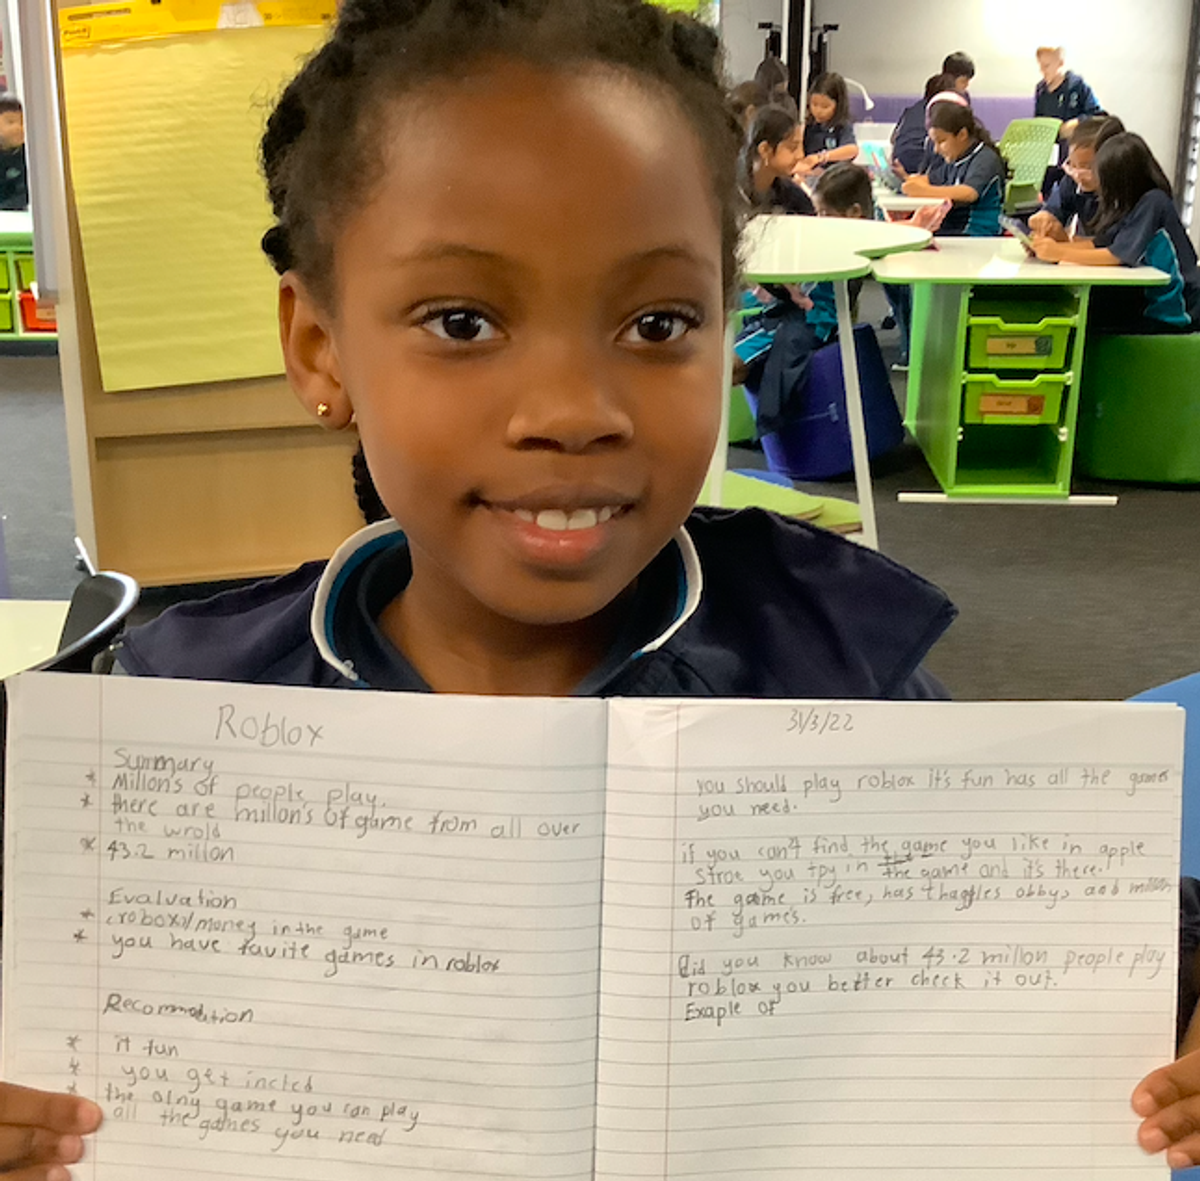 Roblox
Summary
* Millon's of people play.
* there are millon's of game from all over
the wrold
* 43.2 millon
Evaluation
* (robox)/money in the game
* you have favite games in roblox
Recommodution
* it fun
* you get incted
* the olny game you can play
all the games you need
31/3/22
you should play roblox it's fun has all the games
you need.
if you can't find the game you like in apple
stroe you tpy in the game and it's there.
The game is free, has obbys and millon
of game's.
Did you know about 43.2 millon people play
roblox you better check it out.
Exaple of